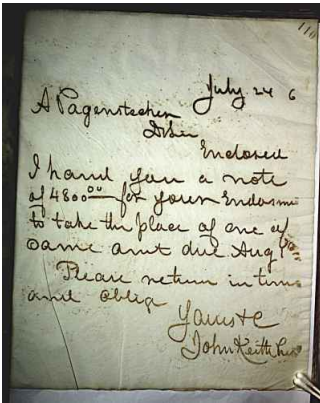 July 24 6
A Pagenstecher
D Sir
Enclosed
I hand you a note
of 4800⁰⁰ for your Endorsme
to take the place of one of
same amt due Aug 1
Please return in time
and oblige
Yours &c
John Keith